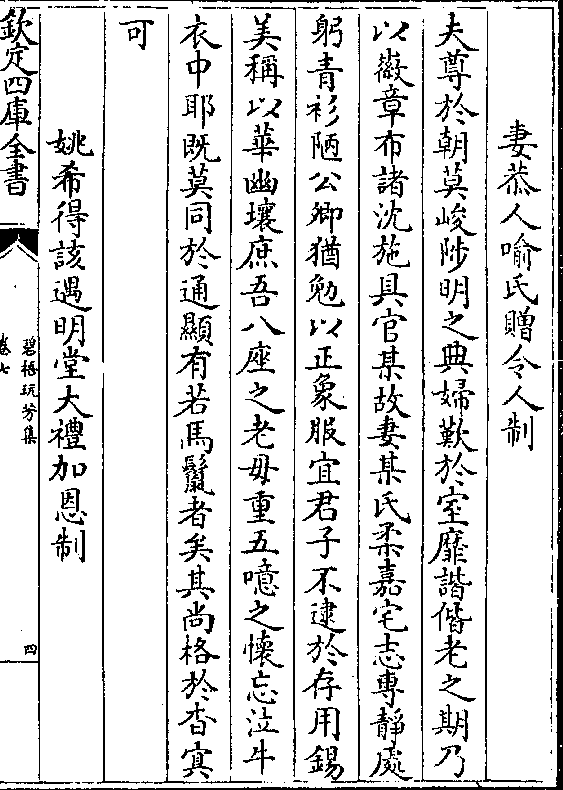 妻恭人喻氏贈令人制
夫尊於朝莫峻陟明之典婦歎於室靡諧偕老之期乃
以徽章布諸沈施具官某故妻某氏柔嘉宅志專靜處
躬青衫陋公卿猶勉以正象服宜君子不逮於存用錫
美稱以華幽壤庶吾八座之老毋重五噫之懷忘泣牛
衣中耶既莫同於通顯有若馬鬛者矣其尚格於杳冥
可
姚希得該遇明堂大禮加恩制
欽定四庫全書
碧梧玩芳集
卷七
四